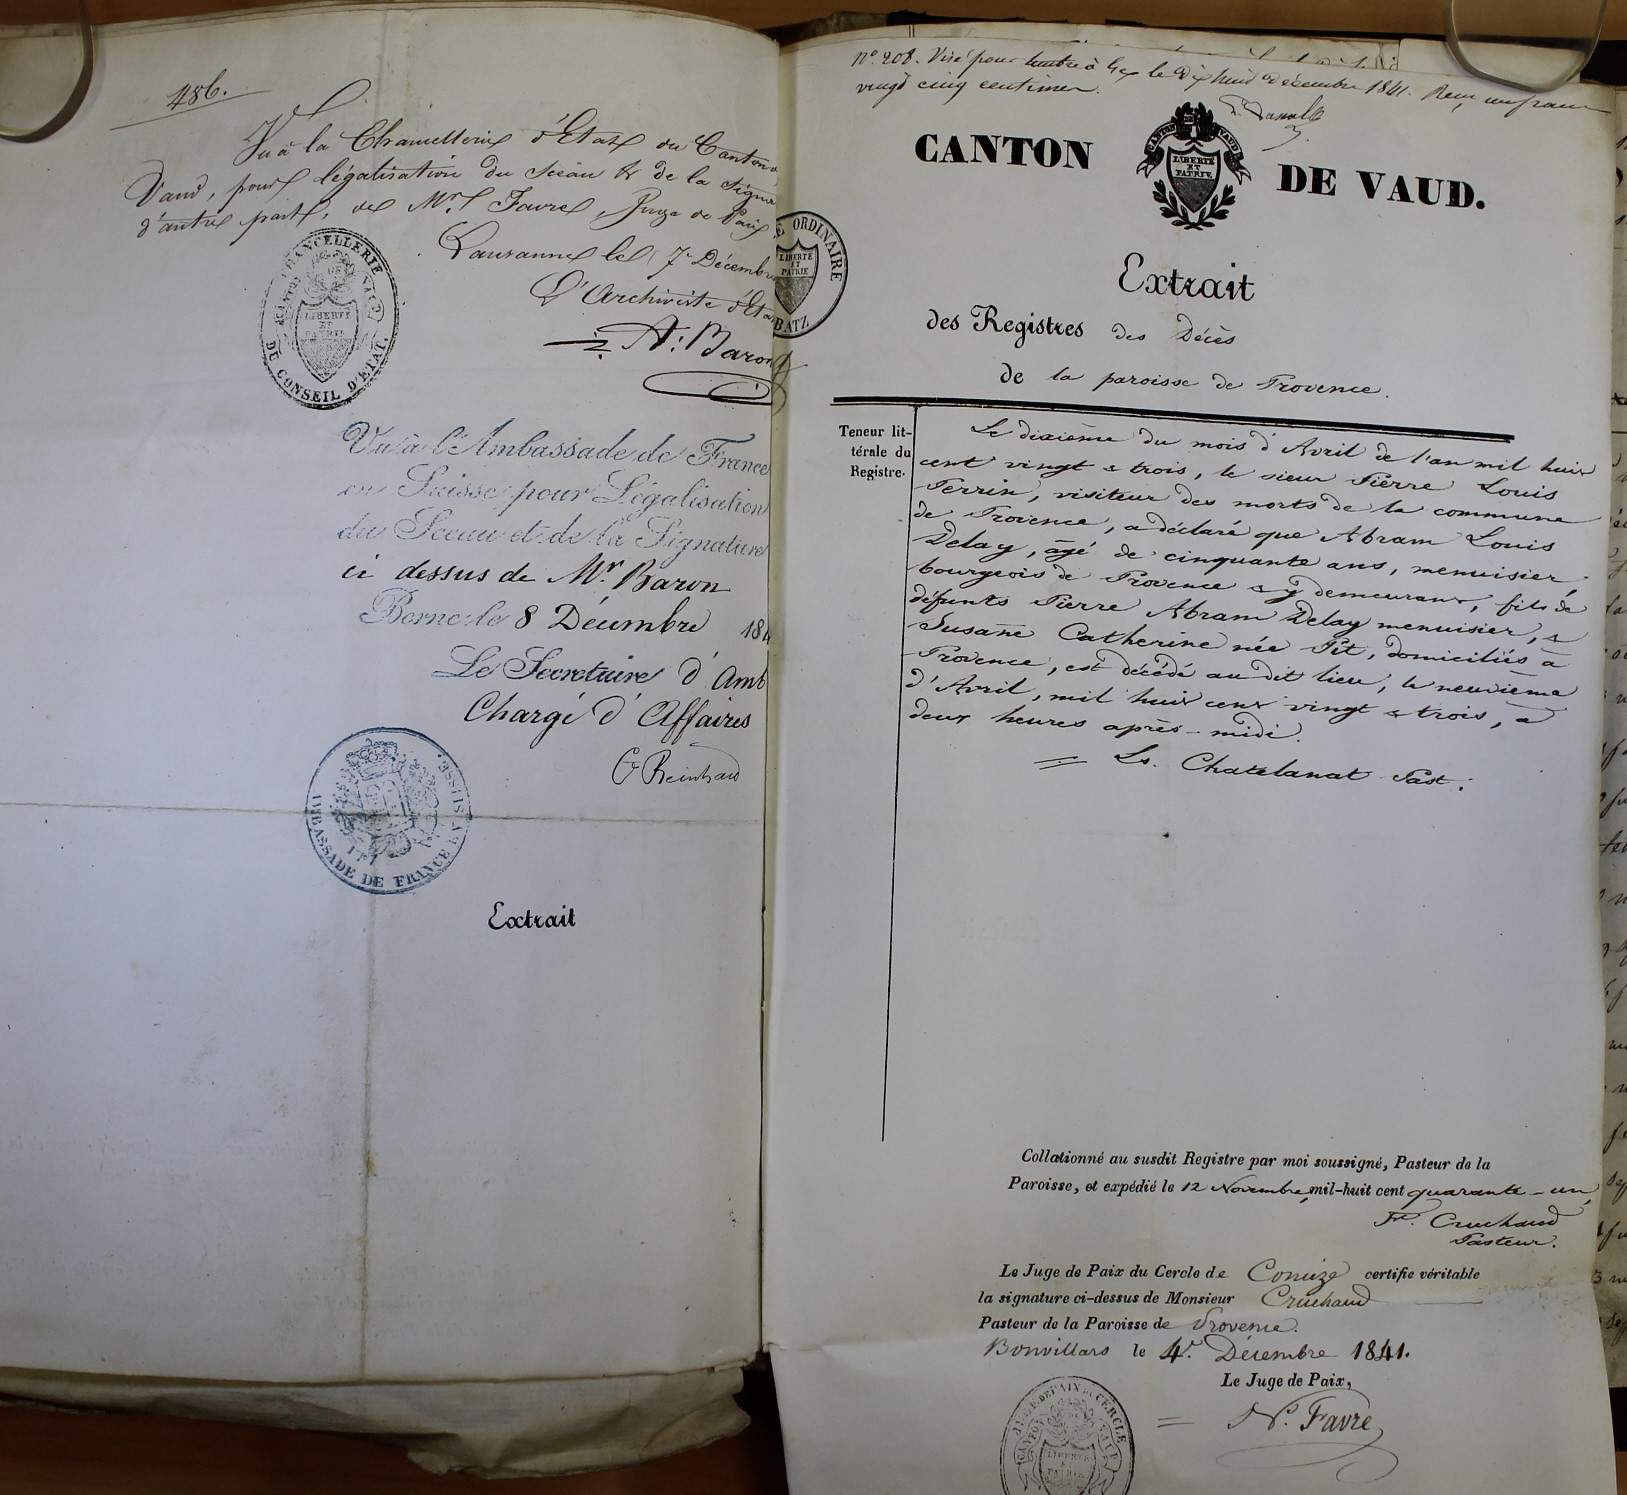 486.
Vu à la Chancellerie d'Etat du Canton de
Vaud, pour légalisation du sceau & de la signa
d'autre part, de Mr. Favre, Juge de Paix
Lausanne le 7e Décembre
L'Archiviste d'Eta
A: Baron
CHANCELLERIE
CANTON DE VAUD
LIBERTÉ
ET
PATRIE
DU CONSEIL D'ÉTAT.
Vu à l'Ambassade de France
en Suisse pour Légalisation
du Sceau et de la Signature
ci dessus de Mr. Baron
Berne, le 8 Décembre 184
Le Secretaire d'Amb
Chargé d'Affaires
G Reinhard
AMBASSADE DE FRANCE EN SUISSE.
Extrait
No. 208. Visé pour timbre à Gex le Dix huit décembre 1841. Reçu un franc
vingt cinq centimes.
CANTON DE VAUD
LIBERTÉ
ET
PATRIE
CANTON DE VAUD.
E ORDINAIRE
LIBERTÉ
ET
PATRIE
BATZ
Extrait
des Registres des Décès
de la paroisse de Provence.
Teneur lit-
térale du
Registre.
Le dixième du mois d'Avril de l'an mil huit
cent vingt & trois, le sieur Pierre Louis
Perrin, visiteur des morts de la commune
de Provence, a déclaré que Abram Louis
Delay, âgé de cinquante ans, menuisier,
bourgeois de Provence & y demeurant, fils de
défunts Pierre Abram Delay menuisier, &
Susanne Catherine née Pit, domiciliés à
Provence, est décédé au dit lieu, le neuvième
d'Avril, mil huit cent vingt & trois, à
deux heures après-midi.
Ls. Chatelanat Past.
Collationné au susdit Registre par moi soussigné, Pasteur de la
Paroisse, et expédié le 12 Novembre, mil-huit cent quarante-un,
Fs. Cruchaud
Pasteur.
Le Juge de Paix du Cercle de Concize certifie véritable
la signature ci-dessus de Monsieur Cruchaud
Pasteur de la Paroisse de Provence.
Bonvillars le 4e. Décembre 1841.
Le Juge de Paix,
Favre
JUGE DE PAIX DU CERCLE
CANTON VAUD
LIBERTÉ
PATRIE